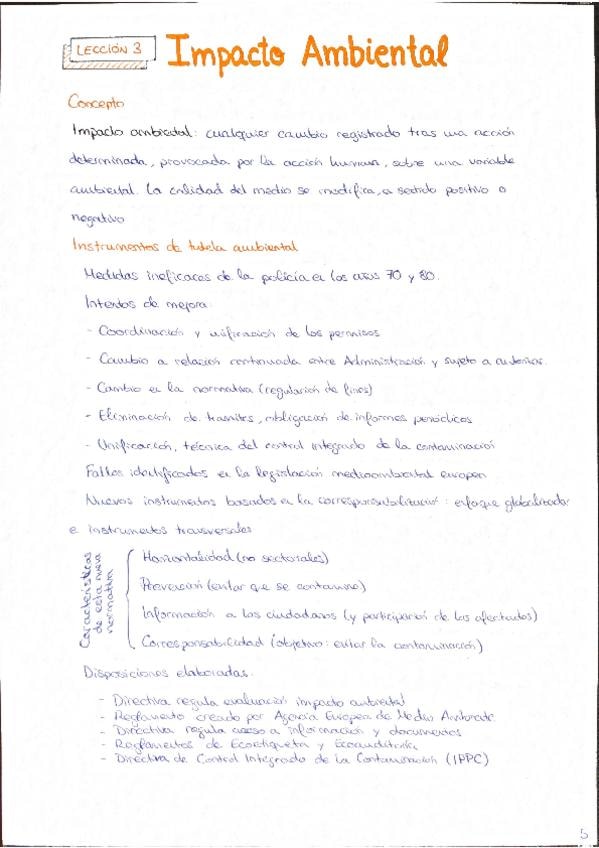 LECCIÓN 3
Impacto Ambiental
Concepto
Impacto ambiental: cualquier cambio registrado tras una acción
determinada, provocada por la acción humana, sobre una variable
ambiental. La calidad del medio se modifica, en sentido positivo o
negativo
Instrumentos de tutela ambiental
Medidas ineficaces de la policía en los años 70 y 80.
Intentos de mejora:
- Coordinación y unificación de los permisos
- Cambio a relación continuada entre Administración y sujeto a autorizar.
- Cambio en la normativa (regulación de fines)
- Eliminación de trámites, obligación de informes periódicos
- Unificación, técnica del control integrado de la contaminación
Fallos identificados en la legislación medioambiental europea
Nuevos instrumentos basados en la corresponsabilización: enfoque globalizador
e instrumentos transversales
Características
de esta nueva
normativa
Horizontalidad (no sectoriales)
Prevención (evitar que se contamine)
Información a los ciudadanos (y participación de los afectados)
Corresponsabilidad (objetivo: evitar la contaminación)
Disposiciones elaboradas:
- Directiva regula evaluación impacto ambiental
- Reglamento creado por Agencia Europea de Medio Ambiente
- Directiva regula acceso a información y documentos
- Reglamentos de Ecoetiqueta y Ecoauditoría
- Directiva de Control Integrado de la Contaminación (IPPC)
5